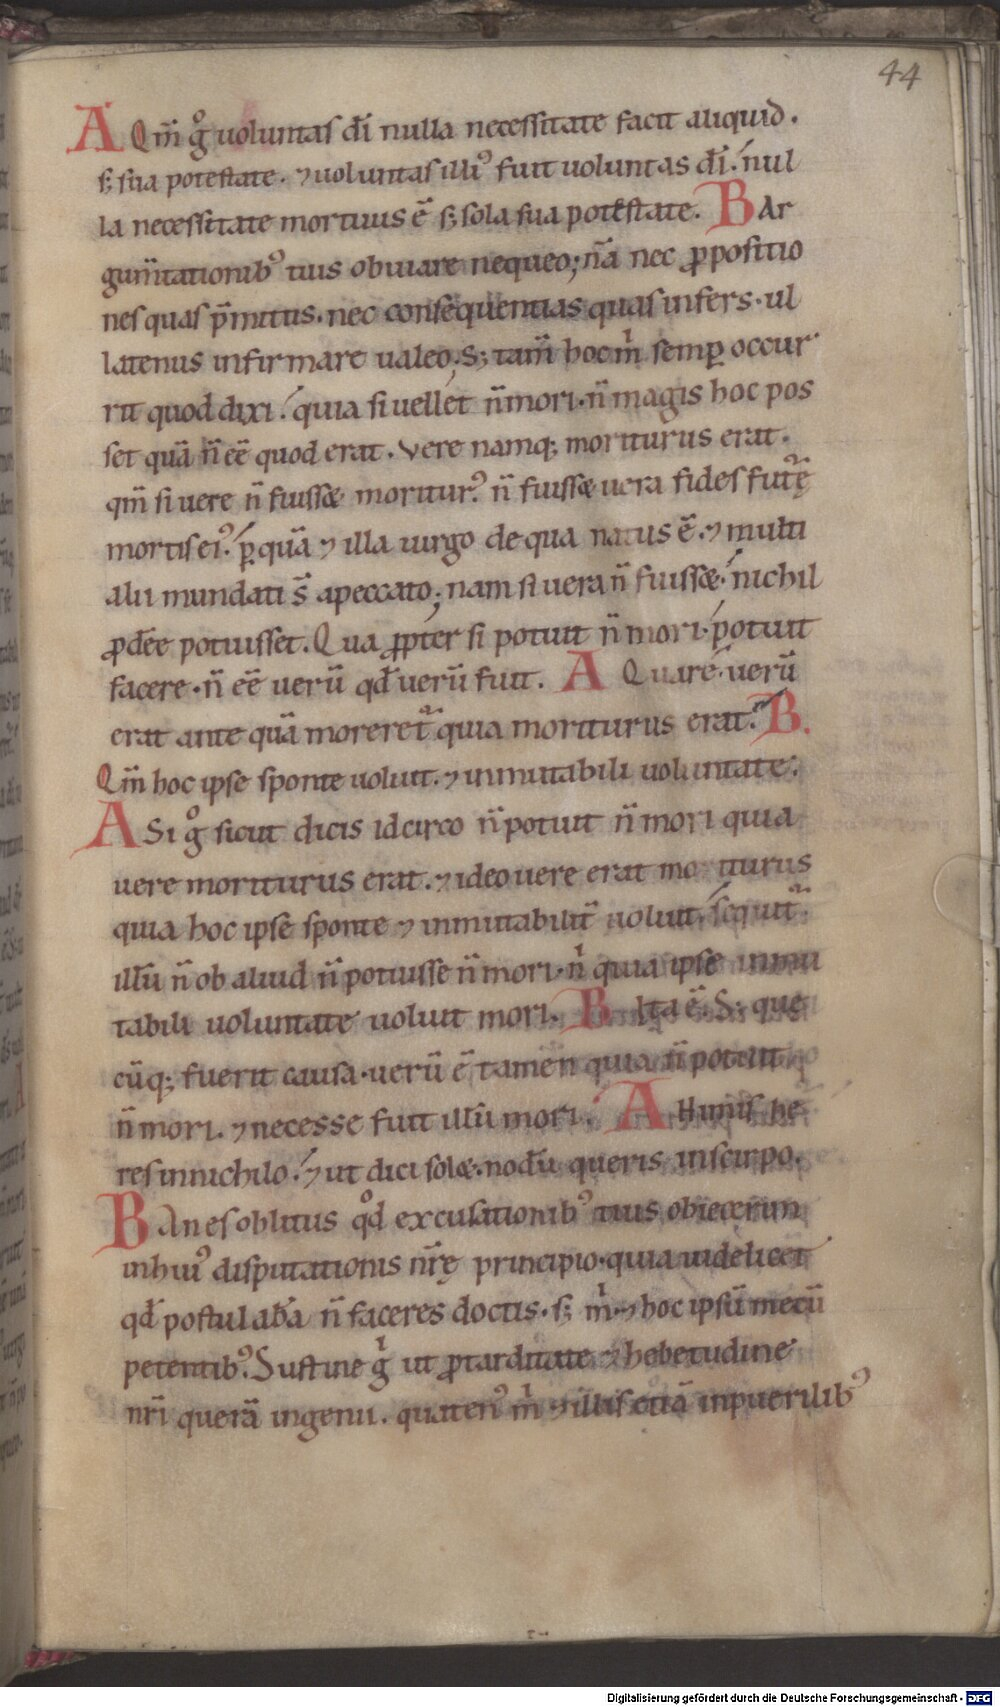 44
A Qm̅ gͦ uoluntas dī nulla necessitate facit aliquid.
s; sua potestate. ⁊ uoluntas illiꝰ fuit uoluntas dī. nul
la necessitate mortuus ē s; sola sua potestate. B Ar
gum̅tationibꝰ tuis obuiare nequeo; nā nec ꝓpositio
nes quas p̅mittis. nec consequentias quas infers. ul
latenus infirmare ualeo; S; tam̅ hoc mͥ semꝑ occur
rit quod dixi. quia si uellet n̅ mori. n̅ magis hoc pos
set quā n̅ eē quod erat. Vere namq; moriturus erat.
qm̅ si uere n̅ fuissæ moriturꝰ. n̅ fuissæ uera fides futᷓę
mortis eiꝰ. ꝑ quā ⁊ illa uirgo de qua natus ē. ⁊ multi
alii mundati s̅ a peccato; nam si uera n̅ fuissæ. nichil
ꝓdeē potuisset. Qua ꝓpter si potuit n̅ mori. potuit
facere. n̅ eē uerū qd̅ uerū fuit. A Quare. uerū
erat ante quā moreretᷓ quia moriturus erat. B.
Qm̅ hoc ipse sponte uoluit. ⁊ inmutabili uoluntate.
A Si gͦ sicut dicis idcirco n̅ potuit n̅ mori quia
uere moriturus erat. ⁊ ideo uere erat moriturus
quia hoc ipse sponte ⁊ inmutabilit̅ uoluit. sequitᷓ.
illū n̅ ob aliud n̅ potuisse n̅ mori. nͥ quia ipse inmu
tabili uoluntate uoluit mori. B Ita ē. S; quę
cūq; fuerit causa. uerū ē tamen quia n̅ potuit
n̅ mori. ⁊ necesse fuit illū mori. A H nimis he
res in nichilo. ⁊ ut dici solæ. nodū queris in scirpo.
B An es oblitus qͦd excusationibꝰ tuis obiecerim
in huiꝰ disputationis nr̅ę principio. quia uidelicet
qd̅ postulabā n̅ faceres doctis. s; mͥ. ⁊ hoc ipsū mecū
petentibꝰ. Sustine gͥ ut ꝓ tarditate ⁊ hebetudine
nr̅i querā ingenii. quatenꝰ mͥ ⁊ illis etiā in puerilibꝰ
Digitalisierung gefördert durch die Deutsche Forschungsgemeinschaft - DFG